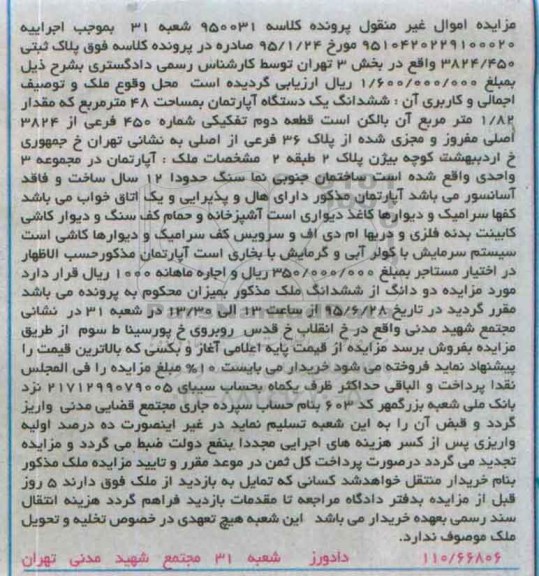 مزایده اموال غیر منقول پرونده کلاسه ۹۵۰۰۳۱ شعبه ۳۱ بموجب اجراییه
۹۵۱۰۴۲۰۲۲۹۱۰۰۰۲۰ مورخ ۹۵/۱/۲۴ صادره در پرونده کلاسه فوق پلاک ثبتی
۳۸۲۴/۴۵۰ واقع در بخش ۳ تهران توسط کارشناس رسمی دادگستری بشرح ذیل
بمبلغ ۱/۶۰۰/۰۰۰/۰۰۰ ریال ارزیابی گردیده است محل وقوع ملک و توصیف
اجمالی و کاربری آن : ششدانگ یک دستگاه آپارتمان بمساحت ۴۸ مترمربع که مقدار
۱/۸۲ متر مربع آن بالکن است قطعه دوم تفکیکی شماره ۴۵۰ فرعی از ۳۸۲۴
اصلی مفروز و مجزی شده از پلاک ۳۶ فرعی از اصلی به نشانی تهران خ جمهوری
خ اردیبهشت کوچه بیژن پلاک ۲ طبقه ۲ مشخصات ملک : آپارتمان در مجموعه ۳
واحدی واقع شده است ساختمان جنوبی نما سنگ حدودا ۱۲ سال ساخت و فاقد
آسانسور می باشد آپارتمان مذکور دارای هال و پذیرایی و یک اتاق خواب می باشد
کفها سرامیک و دیوارها کاغذ دیواری است آشپزخانه و حمام کف سنگ و دیوار کاشی
کابینت بدنه فلزی و دربها ام دی اف و سرویس کف سرامیک و دیوارها کاشی است
سیستم سرمایش با کولر آبی و گرمایش با بخاری است آپارتمان مذکورحسب الاظهار
در اختیار مستاجر بمبلغ ۳۵۰/۰۰۰/۰۰۰ ریال و اجاره ماهانه ۱۰۰۰ ریال قرار دارد
مورد مزایده دو دانگ از ششدانگ ملک مذکور بمیزان محکوم به پرونده می باشد
مقرر گردید در تاریخ ۹۵/۶/۲۸ از ساعت ۱۳ الی ۱۳/۳۰ در شعبه ۳۱ در نشانی
مجتمع شهید مدنی واقع در خ انقلاب خ قدس روبروی خ پورسینا ط سوم از طریق
مزایده بفروش برسد مزایده از قیمت پایه اعلامی آغاز و بکسی که بالاترین قیمت را
پیشنهاد نماید فروخته می شود خریدار می بایست ۱۰% مبلغ مزایده را فی المجلس
نقدا پرداخت و الباقی حداکثر ظرف یکماه بحساب سیبای ۲۱۷۱۲۹۹۰۷۹۰۰۵ نزد
بانک ملی شعبه بزرگمهر کد ۶۰۳ بنام حساب سپرده جاری مجتمع قضایی مدنی واریز
گردد و قبض آن را به این شعبه تسلیم نماید در غیر اینصورت ده درصد اولیه
واریزی پس از کسر هزینه های اجرایی مجددا بنفع دولت ضبط می گردد و مزایده
تجدید می گردد درصورت پرداخت کل ثمن در موعد مقرر و تایید مزایده ملک مذکور
بنام خریدار منتقل خواهدشد کسانی که تمایل به بازدید از ملک فوق دارند ۵ روز
قبل از مزایده بدفتر دادگاه مراجعه تا مقدمات بازدید فراهم گردد هزینه انتقال
سند رسمی بعهده خریدار می باشد این شعبه هیچ تعهدی در خصوص تخلیه و تحویل
ملک موصوف ندارد.
۱۱۰/۶۶۸۰۶ دادورز شعبه ۳۱ مجتمع شهید مدنی تهران